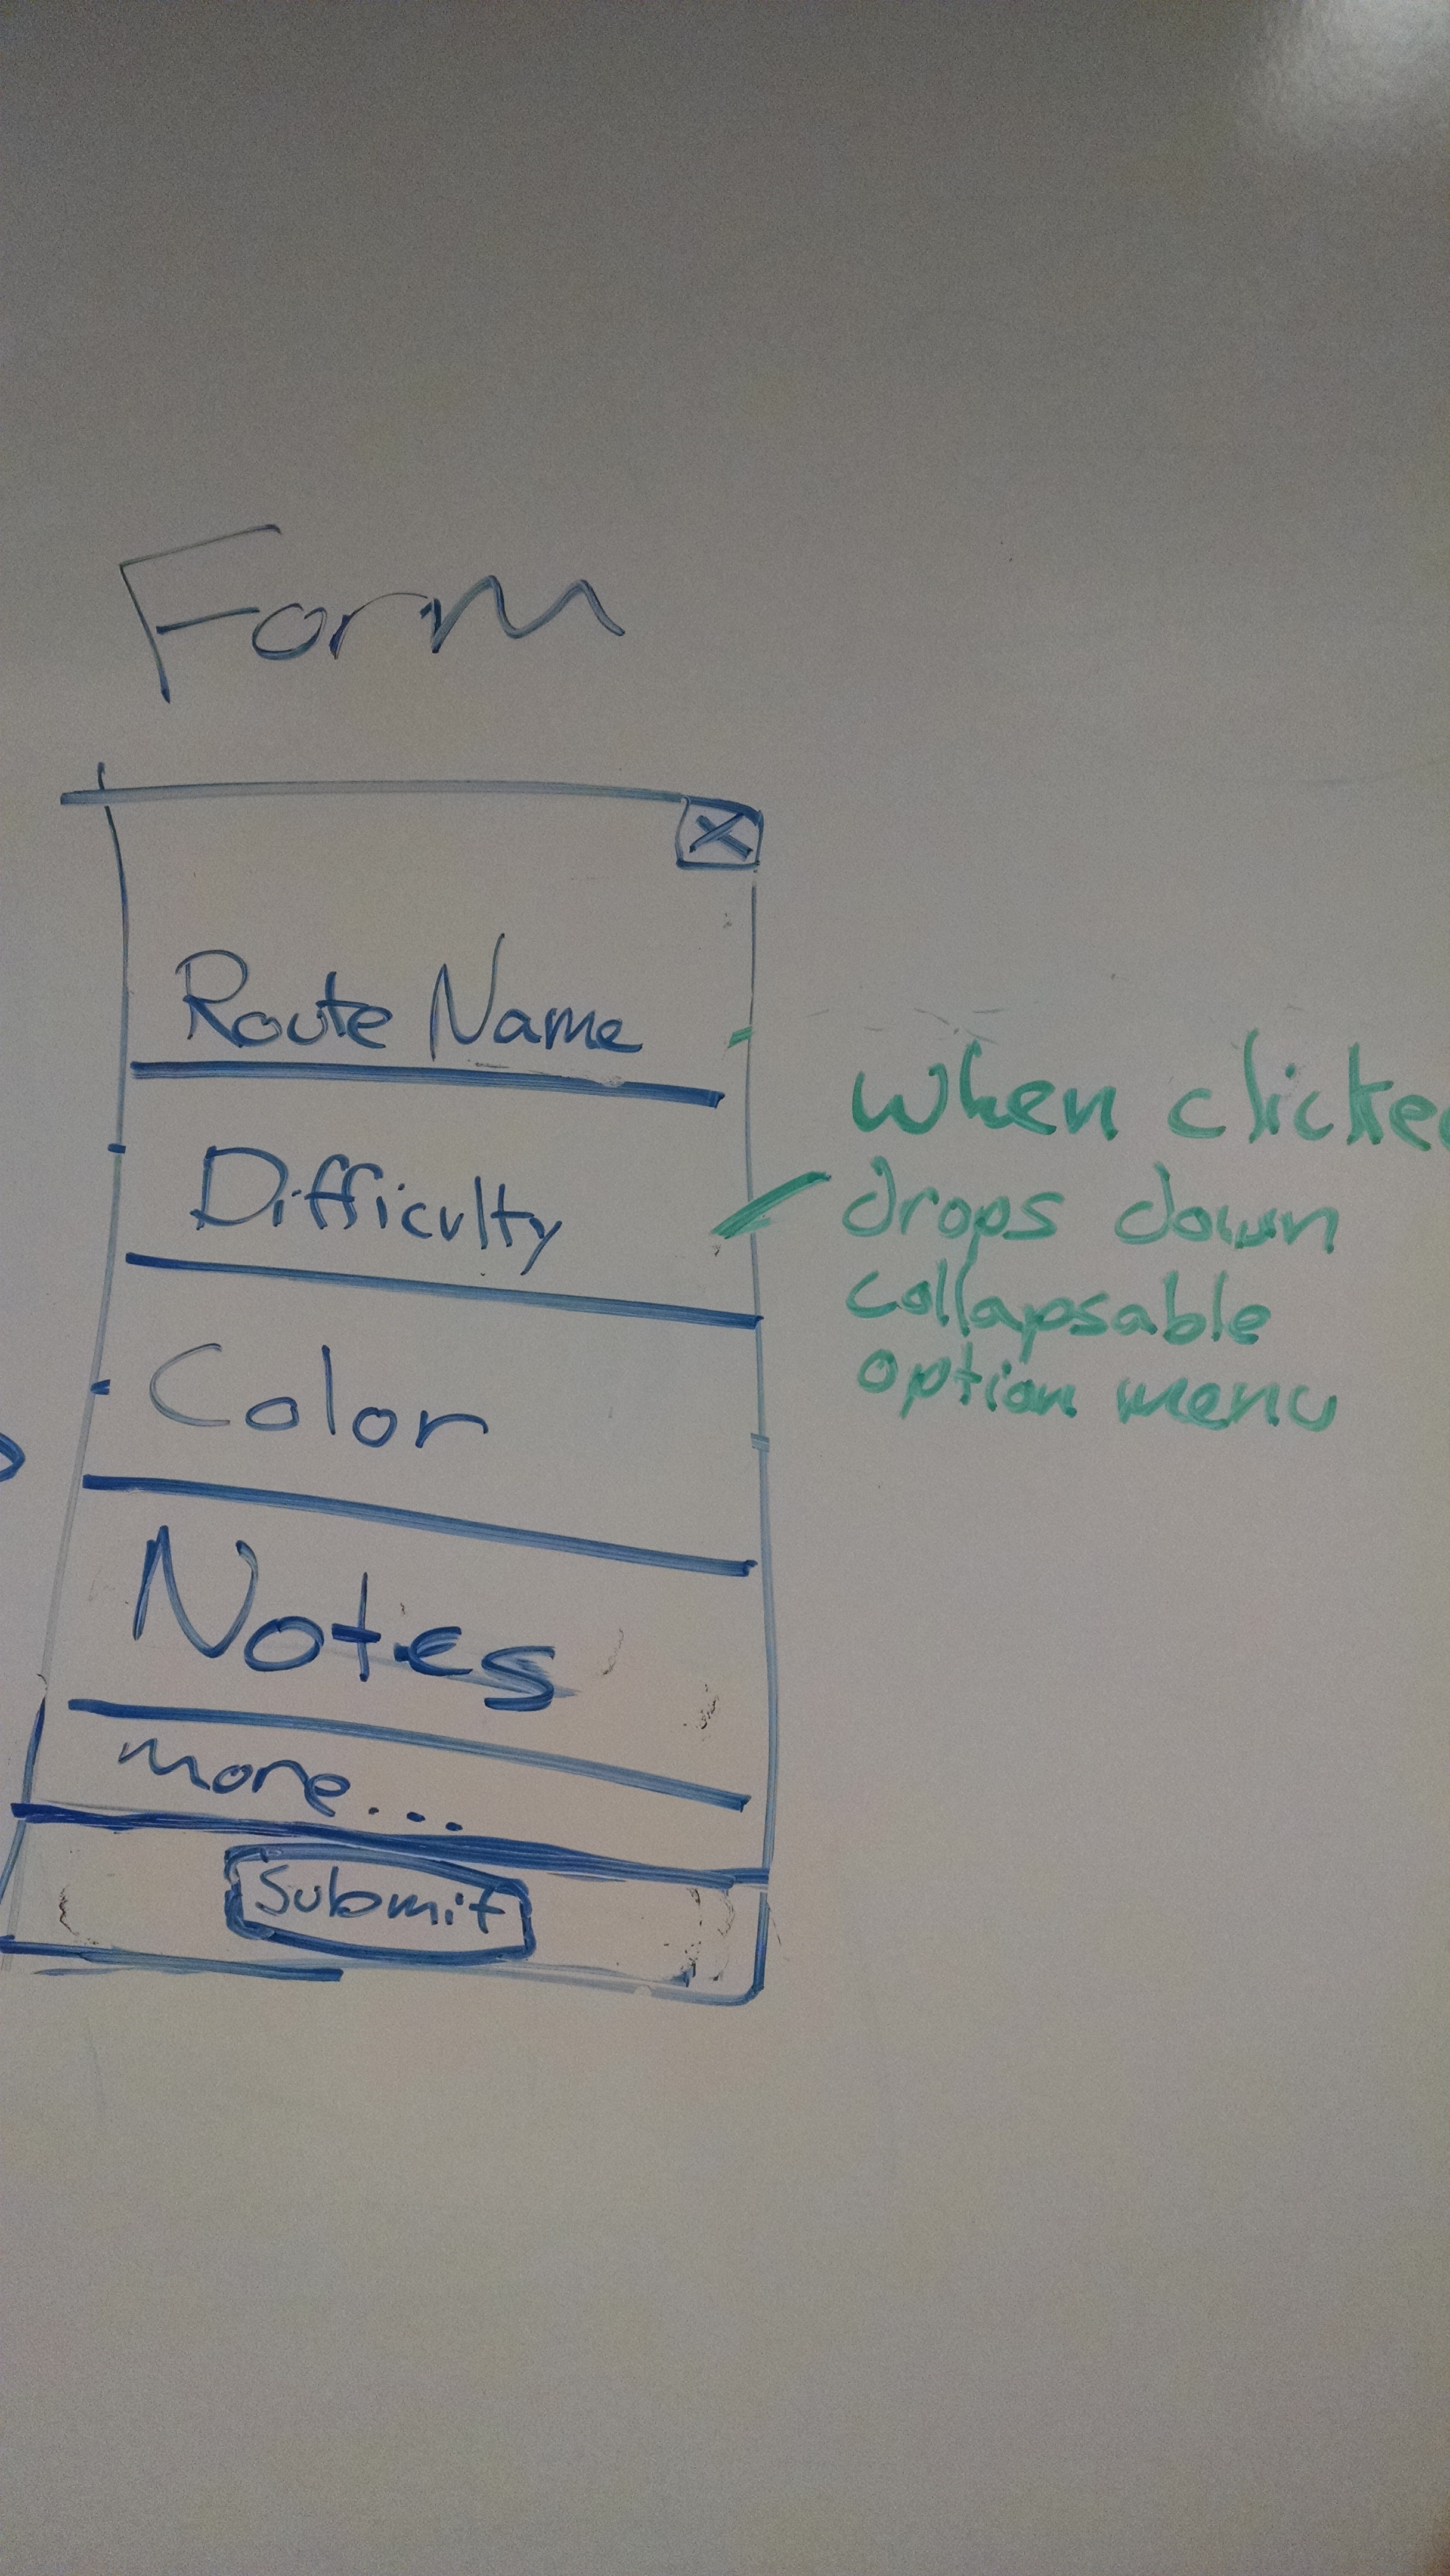 Form
X
Route Name
Difficulty
Color
Notes
more...
Submit
when clicked
drops down
collapsable
option menu